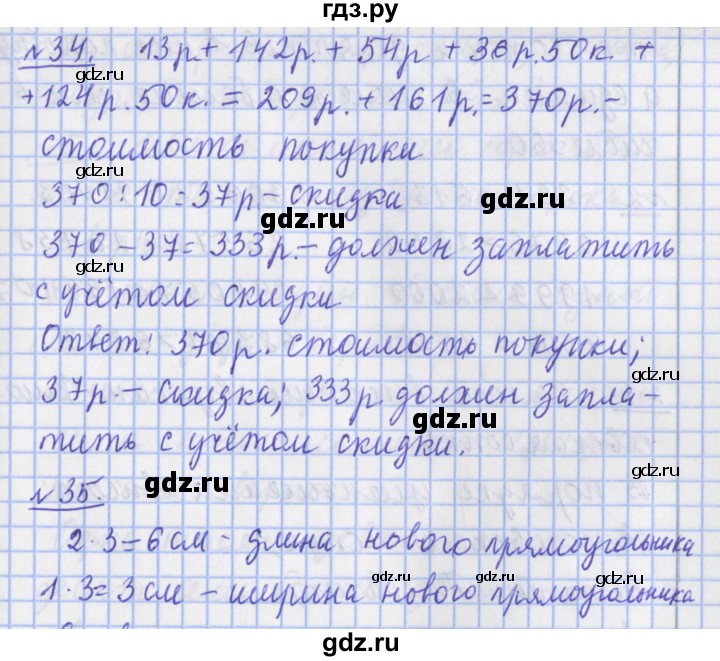 гдз.ру
№34. 13р + 142р. + 54р + 36р.50к. +
+124р.50к. = 209р. + 161р. = 370р. –
стоимость покупки
370 : 10 = 37р – скидка
gdz.ru
gdz.ru
370 – 37 = 333р. – должен заплатить
с учётом скидки
Ответ: 370р. стоимость покупки;
gdz.ru
gdz.ru
37р. – скидка; 333р должен запла–
gdz.ru
тить с учётом скидки.
gdz.ru
gdz.ru
№35.
2 · 3 = 6 см – длина нового прямоугольника
gdz.ru
gdz.ru
1 · 3 = 3 см – ширина нового прямоугольника
gdz.ru